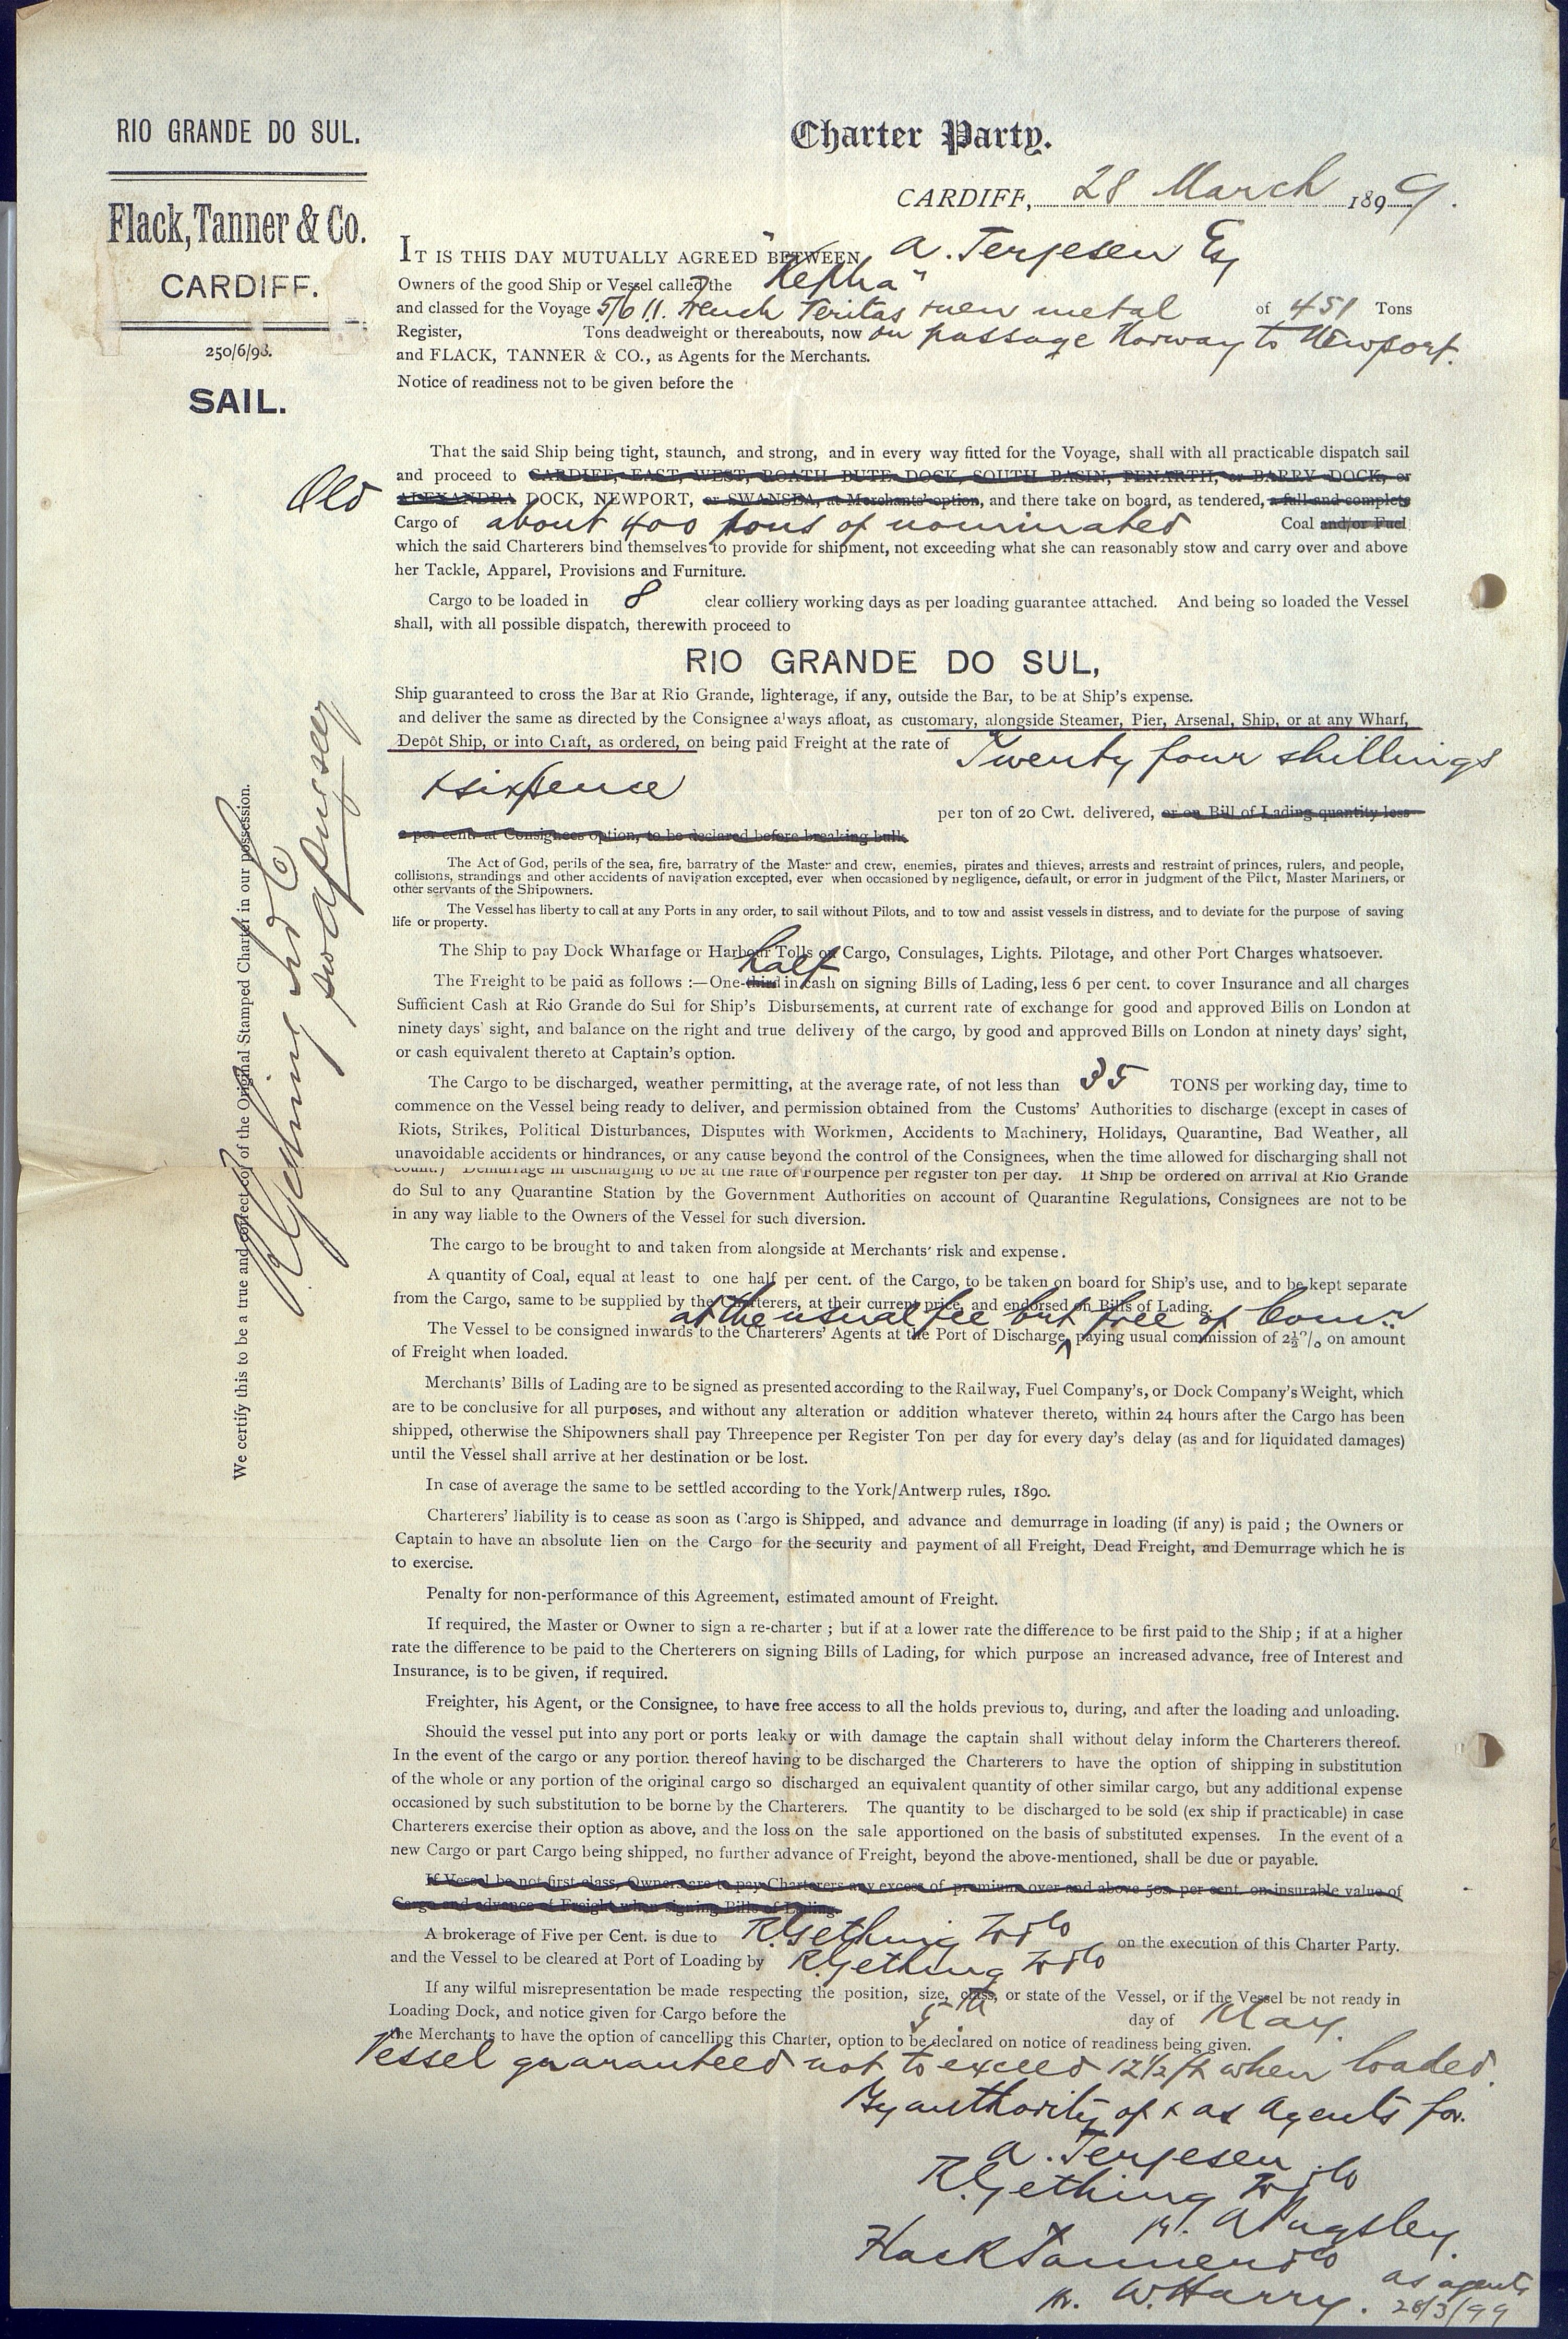 RIO GRANDE DO SUL.
Flack, Tanner & Co.
CARDIFF.
250/6/98.
SAIL.
Charter Party.
CARDIFF, 28 March 1899.
IT IS THIS DAY MUTUALLY AGREED BETWEEN A. Terjesen Esq
Owners of the good Ship or Vessel called the "Kepha"
and classed for the Voyage 5/6 1.1. French Veritas & new metal of 451 Tons
Register, Tons deadweight or thereabouts, now on passage Norway to Newport.
and FLACK, TANNER & CO., as Agents for the Merchants.
Notice of readiness not to be given before the
That the said Ship being tight, staunch, and strong, and in every way fitted for the Voyage, shall with all practicable dispatch sail
and proceed to CARDIFF, EAST, WEST, ROATH BUTE DOCK, SOUTH BASIN, PENARTH, or BARRY DOCK, or
Old ALEXANDRA DOCK, NEWPORT, or SWANSEA, at Merchants' option, and there take on board, as tendered, a full and complete
Cargo of about 400 tons of nominated Coal and/or Fuel
which the said Charterers bind themselves to provide for shipment, not exceeding what she can reasonably stow and carry over and above
her Tackle, Apparel, Provisions and Furniture.
Cargo to be loaded in 8 clear colliery working days as per loading guarantee attached. And being so loaded the Vessel
shall, with all possible dispatch, therewith proceed to
RIO GRANDE DO SUL,
Ship guaranteed to cross the Bar at Rio Grande, lighterage, if any, outside the Bar, to be at Ship's expense.
and deliver the same as directed by the Consignee always afloat, as customary, alongside Steamer, Pier, Arsenal, Ship, or at any Wharf,
Depôt Ship, or into Craft, as ordered, on being paid Freight at the rate of Twenty four shillings
& sixpence
per ton of 20 Cwt. delivered, or on Bill of Lading quantity less
2 per cent. at Consignees option, to be declared before breaking bulk
The Act of God, perils of the sea, fire, barratry of the Master and crew, enemies, pirates and thieves, arrests and restraint of princes, rulers, and people,
collisions, strandings and other accidents of navigation excepted, ever when occasioned by negligence, default, or error in judgment of the Pilot, Master Mariners, or
other servants of the Shipowners.
The Vessel has liberty to call at any Ports in any order, to sail without Pilots, and to tow and assist vessels in distress, and to deviate for the purpose of saving
life or property.
The Ship to pay Dock Wharfage or Harbour Tolls on Cargo, Consulages, Lights. Pilotage, and other Port Charges whatsoever.
half
The Freight to be paid as follows :—One-third in cash on signing Bills of Lading, less 6 per cent. to cover Insurance and all charges
Sufficient Cash at Rio Grande do Sul for Ship's Disbursements, at current rate of exchange for good and approved Bills on London at
ninety days' sight, and balance on the right and true delivery of the cargo, by good and approved Bills on London at ninety days' sight,
or cash equivalent thereto at Captain's option.
The Cargo to be discharged, weather permitting, at the average rate, of not less than 35 TONS per working day, time to
commence on the Vessel being ready to deliver, and permission obtained from the Customs' Authorities to discharge (except in cases of
Riots, Strikes, Political Disturbances, Disputes with Workmen, Accidents to Machinery, Holidays, Quarantine, Bad Weather, all
unavoidable accidents or hindrances, or any cause beyond the control of the Consignees, when the time allowed for discharging shall not
count.) Demurrage in discharging to be at the rate of Fourpence per register ton per day. If Ship be ordered on arrival at Rio Grande
do Sul to any Quarantine Station by the Government Authorities on account of Quarantine Regulations, Consignees are not to be
in any way liable to the Owners of the Vessel for such diversion.
The cargo to be brought to and taken from alongside at Merchants' risk and expense.
A quantity of Coal, equal at least to one half per cent. of the Cargo, to be taken on board for Ship's use, and to be kept separate
from the Cargo, same to be supplied by the Charterers, at their current price, and endorsed on Bills of Lading.
at the usual fee but free of Comn
The Vessel to be consigned inwards to the Charterers' Agents at the Port of Discharge, paying usual commission of 2½% on amount
of Freight when loaded.
Merchants' Bills of Lading are to be signed as presented according to the Railway, Fuel Company's, or Dock Company's Weight, which
are to be conclusive for all purposes, and without any alteration or addition whatever thereto, within 24 hours after the Cargo has been
shipped, otherwise the Shipowners shall pay Threepence per Register Ton per day for every day's delay (as and for liquidated damages)
until the Vessel shall arrive at her destination or be lost.
In case of average the same to be settled according to the York/Antwerp rules, 1890.
Charterers' liability is to cease as soon as Cargo is Shipped, and advance and demurrage in loading (if any) is paid ; the Owners or
Captain to have an absolute lien on the Cargo for the security and payment of all Freight, Dead Freight, and Demurrage which he is
to exercise.
Penalty for non-performance of this Agreement, estimated amount of Freight.
If required, the Master or Owner to sign a re-charter ; but if at a lower rate the difference to be first paid to the Ship ; if at a higher
rate the difference to be paid to the Cherterers on signing Bills of Lading, for which purpose an increased advance, free of Interest and
Insurance, is to be given, if required.
Freighter, his Agent, or the Consignee, to have free access to all the holds previous to, during, and after the loading and unloading.
Should the vessel put into any port or ports leaky or with damage the captain shall without delay inform the Charterers thereof.
In the event of the cargo or any portion thereof having to be discharged the Charterers to have the option of shipping in substitution
of the whole or any portion of the original cargo so discharged an equivalent quantity of other similar cargo, but any additional expense
occasioned by such substitution to be borne by the Charterers. The quantity to be discharged to be sold (ex ship if practicable) in case
Charterers exercise their option as above, and the loss on the sale apportioned on the basis of substituted expenses. In the event of a
new Cargo or part Cargo being shipped, no further advance of Freight, beyond the above-mentioned, shall be due or payable.
If Vessel be not first-class, Owners are to pay Charterers any excess of premium over and above 50s. per cent. on insurable value of
Cargo and advance of Freight when signing Bills of Lading.
A brokerage of Five per Cent. is due to R. Gething & Co on the execution of this Charter Party.
and the Vessel to be cleared at Port of Loading by R. Gething & Co
If any wilful misrepresentation be made respecting the position, size, class, or state of the Vessel, or if the Vessel be not ready in
Loading Dock, and notice given for Cargo before the 5th day of May.
the Merchants to have the option of cancelling this Charter, option to be declared on notice of readiness being given.
Vessel guaranteed not to exceed 12½ ft when loaded.
By authority of & as Agents for
A. Terjesen
R. Gething & Co
pr. A Pugsley.
Flack Tanner & Co
pr. W. Harry. as agents
28/3/99
We certify this to be a true and correct copy of the Original Stamped Charter in our possession.
R. Gething & Co
pro A Pugsley